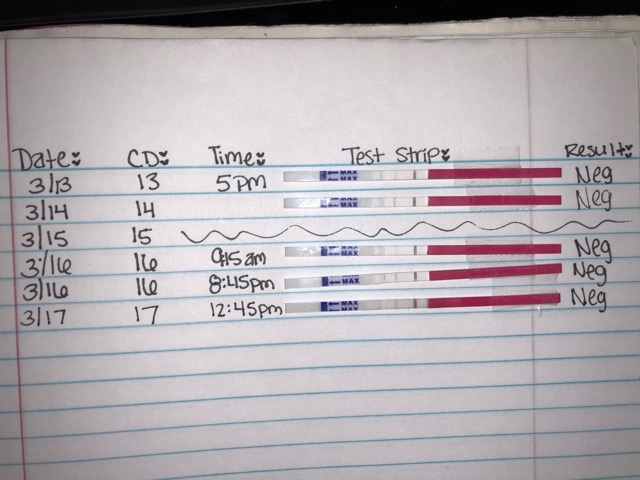 Date: CD: Time: Test Strip: Result:
3/13 13 5pm MAX MAX Neg
3/14 14 MAX MAX Neg
3/15 15
3/16 16 9:15 am MAX MAX Neg
3/16 16 8:45pm MAX Neg
3/17 17 12:45pm MAX MAX Neg